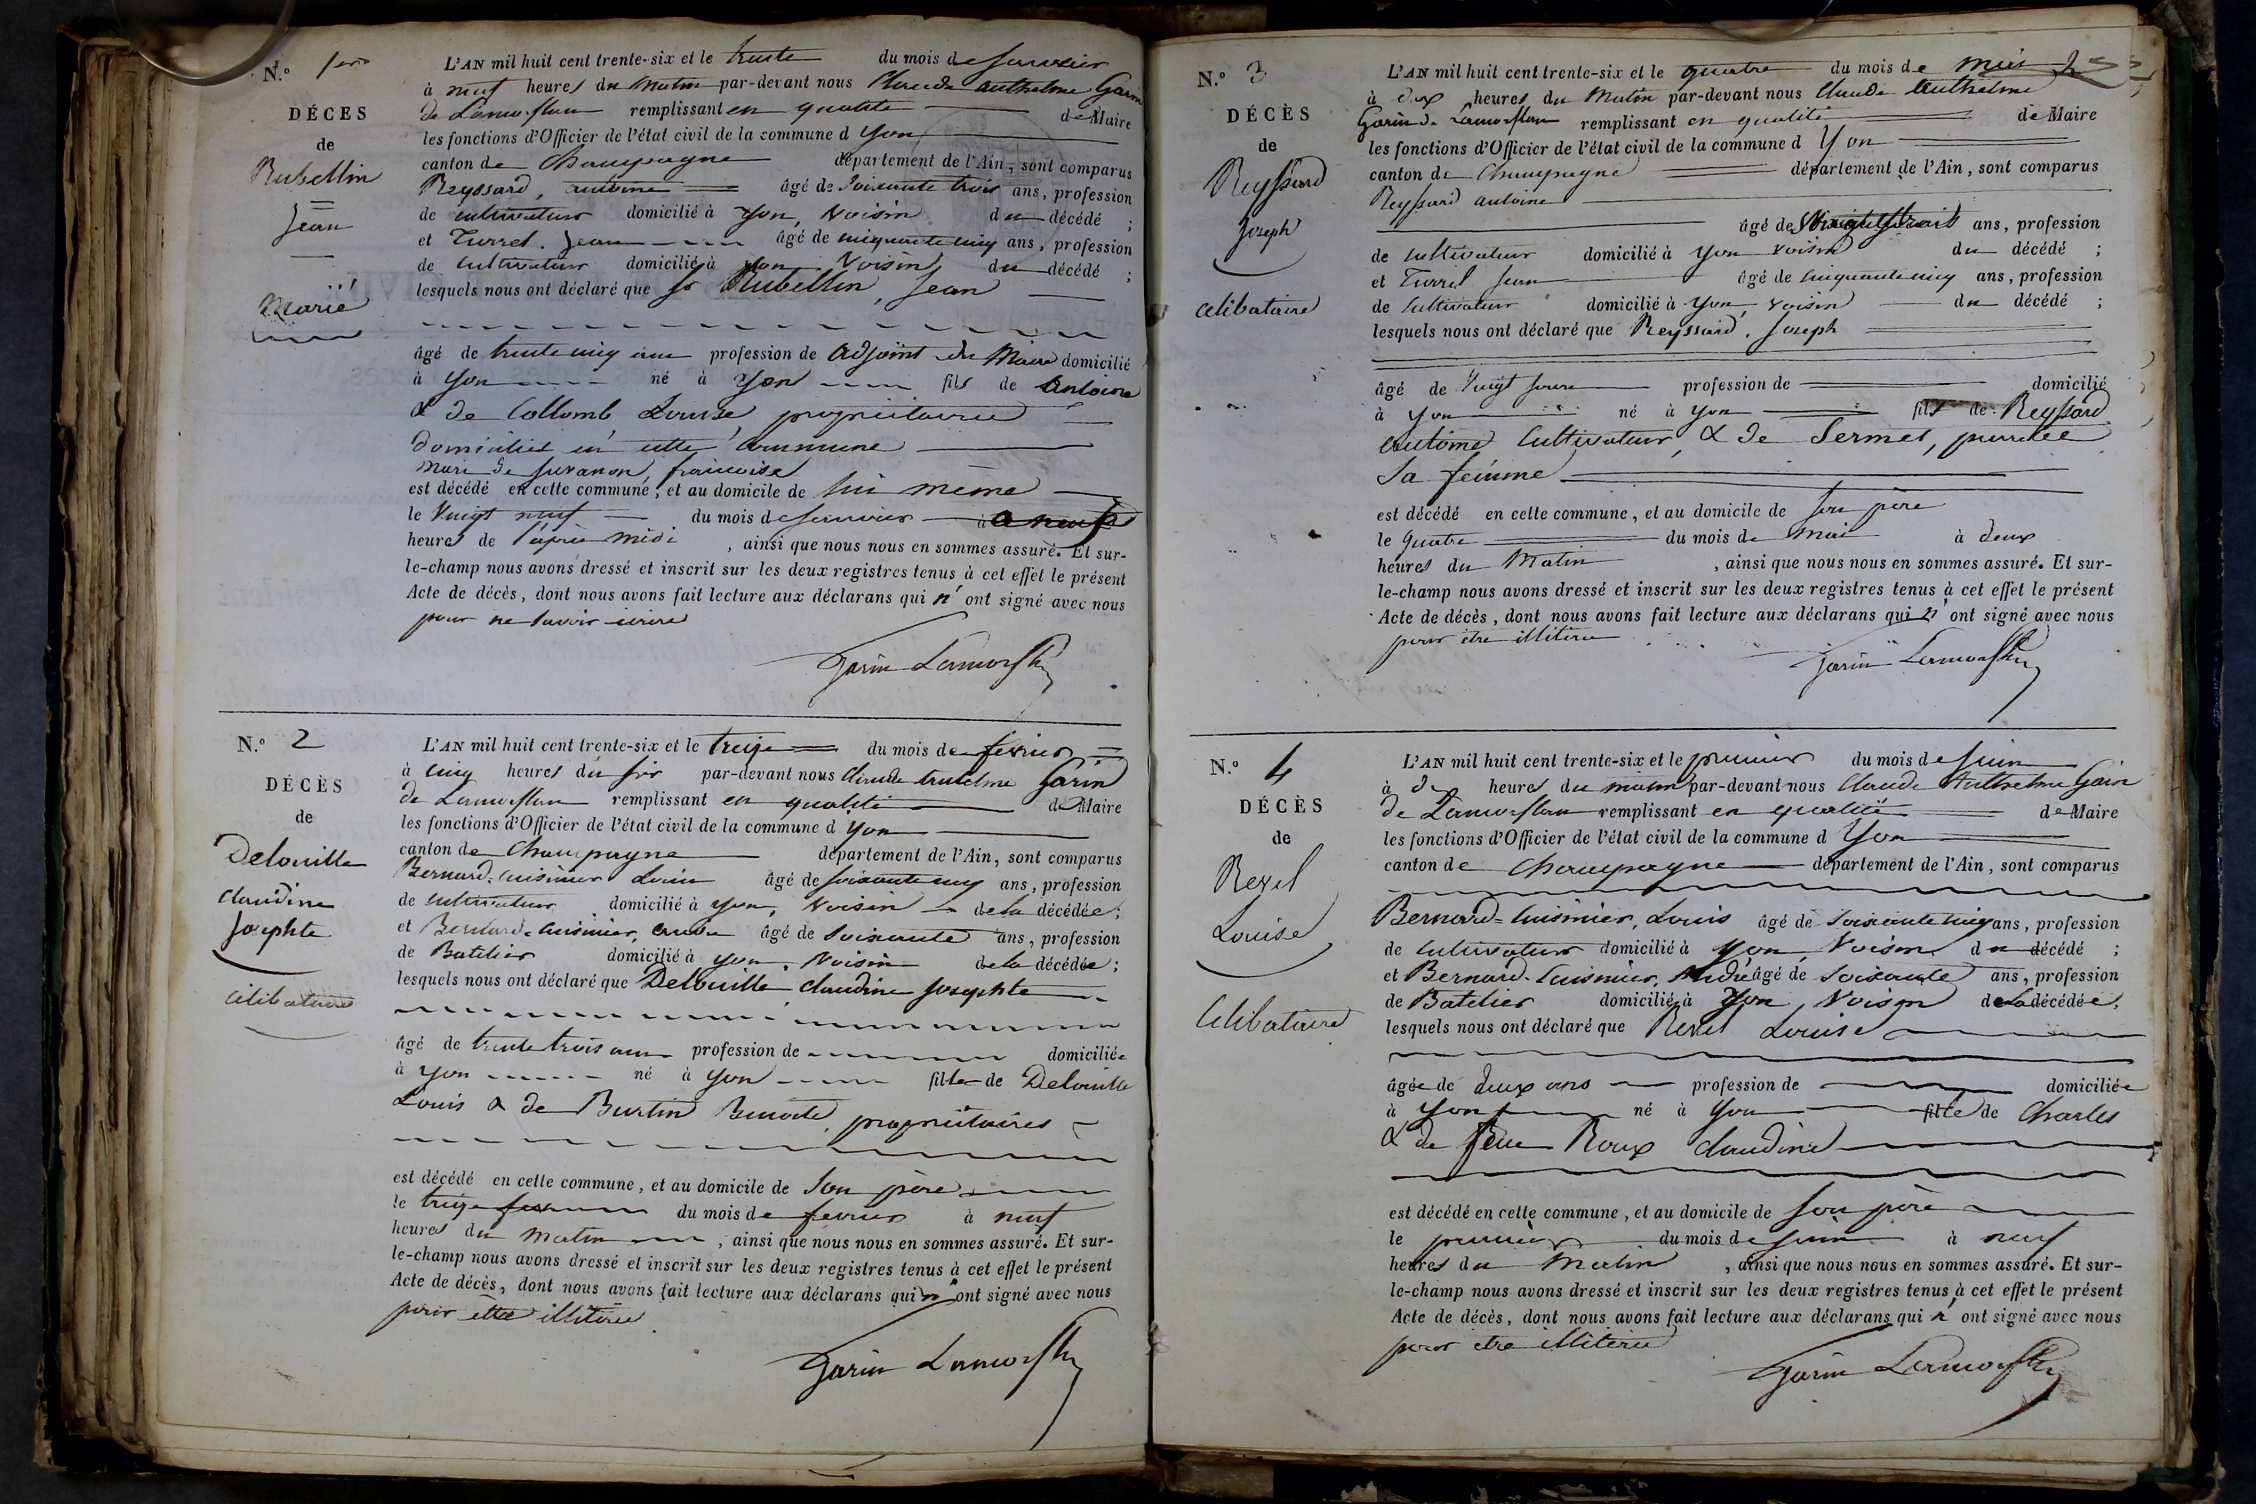 N.º 1er
DÉCES
de
Rubellin
Jean
Marié
L'AN mil huit cent trente-six et le trente du mois de Janvier
à neuf heures du Matin par-devant nous Claude anthelme Garin
de Lamorflan remplissant en qualité de Maire
les fonctions d'Officier de l'état civil de la commune d Yon
canton de Champagne département de l'Ain, sont comparus
Reyssard, antoine âgé de Soixante trois ans, profession
de cultivateur domicilié à Yon, Voisin du décédé ;
et Turrel. Jean âgé de cinquante cinq ans, profession
de cultivateur domicilié à yon Voisin du décédé ;
lesquels nous ont déclaré que Sr Rubellin, Jean
âgé de trente cinq ans profession de adjoint du Maire domicilié
à Yon né à Yon fils de Antoine
& de Collomb Louise propriétaires
domiciliés en cette commune
Mari de Juvanon françoise
est décédé en cette commune, et au domicile de lui même
le Vingt neuf du mois de Janvier à a neuf
heures de l'après midi , ainsi que nous nous en sommes assuré. Et sur-
le-champ nous avons dressé et inscrit sur les deux registres tenus à cet effet le présent
Acte de décès, dont nous avons fait lecture aux déclarans qui n' ont signé avec nous
pour ne savoir écrire
Garin Lamorflan
N.º 2
DÉCÈS
de
Delouille
claudine
Josephte
célibataire
L'AN mil huit cent trente-six et le treize du mois de février
à cinq heures du soir par-devant nous Claude anthelme Garin
de Lamorflan remplissant en qualité de Maire
les fonctions d'Officier de l'état civil de la commune d Yon
canton de Champagne département de l'Ain, sont comparus
Bernard-Cuisinier Louis âgé de soixante cinq ans, profession
de cultivateur domicilié à yon, Voisin de la décédée ;
et Bernard-Cuisinier, andré âgé de Soixante ans, profession
de Batelier domicilié à yon, Voisin de la décédée ;
lesquels nous ont déclaré que Delouille, claudine Josephte
âgé de trente trois ans profession de domiciliée
à yon né à yon fille de Delouille
Louis & de Burtin Benoite, propriétaires
est décédé en cette commune, et au domicile de Son père
le treize du mois de février à neuf
heures du matin , ainsi que nous nous en sommes assuré. Et sur-
le-champ nous avons dressé et inscrit sur les deux registres tenus à cet effet le présent
Acte de décès, dont nous avons fait lecture aux déclarans qui n' ont signé avec nous
pour être illitérés
Garin Lamorflan
N.º 3
DÉCÈS
de
Reyssard
Joseph
célibataire
L'AN mil huit cent trente-six et le quatre du mois de mai
à dix heures du Matin par-devant nous Claude Anthelme
Garin de Lamorflan remplissant en qualité de Maire
les fonctions d'Officier de l'état civil de la commune d Yon
canton de Champagne département de l'Ain, sont comparus
Reyssard antoine
âgé de ans, profession
de cultivateur domicilié à Yon voisin du décédé ;
et Turrel Jean âgé de cinquante cinq ans, profession
de Cultivateur domicilié à Yon, voisin du décédé ;
lesquels nous ont déclaré que Reyssard, Joseph
âgé de Vingt profession de domicilié
à Yon né à Yon fils de Reyssard
antoine Cultivateur, & de Sermet,
Sa femme
est décédé en cette commune, et au domicile de son père
le Quatre du mois de mai à deux
heures du Matin , ainsi que nous nous en sommes assuré. Et sur-
le-champ nous avons dressé et inscrit sur les deux registres tenus à cet effet le présent
Acte de décès, dont nous avons fait lecture aux déclarans qui n' ont signé avec nous
pour être illitérés
Garin Lamorflan
N.º 4
DÉCÈS
de
Revel
Louise
Célibataire
L'AN mil huit cent trente-six et le premier du mois de Juin
à dix heures du matin par-devant nous Claude Anthelme Garin
de Lamorflan remplissant en qualité de Maire
les fonctions d'Officier de l'état civil de la commune d Yon
canton de Champagne département de l'Ain, sont comparus
Bernard-Cuisinier, Louis âgé de soixante cinq ans, profession
de cultivateur domicilié à Yon, Voisin du décédé ;
et Bernard-Cuisinier, André âgé de Soixante ans, profession
de Batelier domicilié à Yon, Voisin de la décédée ;
lesquels nous ont déclaré que Revel Louise
âgée de deux ans profession de domiciliée
à Yon né à Yon fille de Charles
& de feue Roux Claudine
est décédé en cette commune, et au domicile de son père
le premier du mois de Juin à neuf
heures du Matin , ainsi que nous nous en sommes assuré. Et sur-
le-champ nous avons dressé et inscrit sur les deux registres tenus à cet effet le présent
Acte de décès, dont nous avons fait lecture aux déclarans qui n' ont signé avec nous
pour être illitérés
Garin Lamorflan